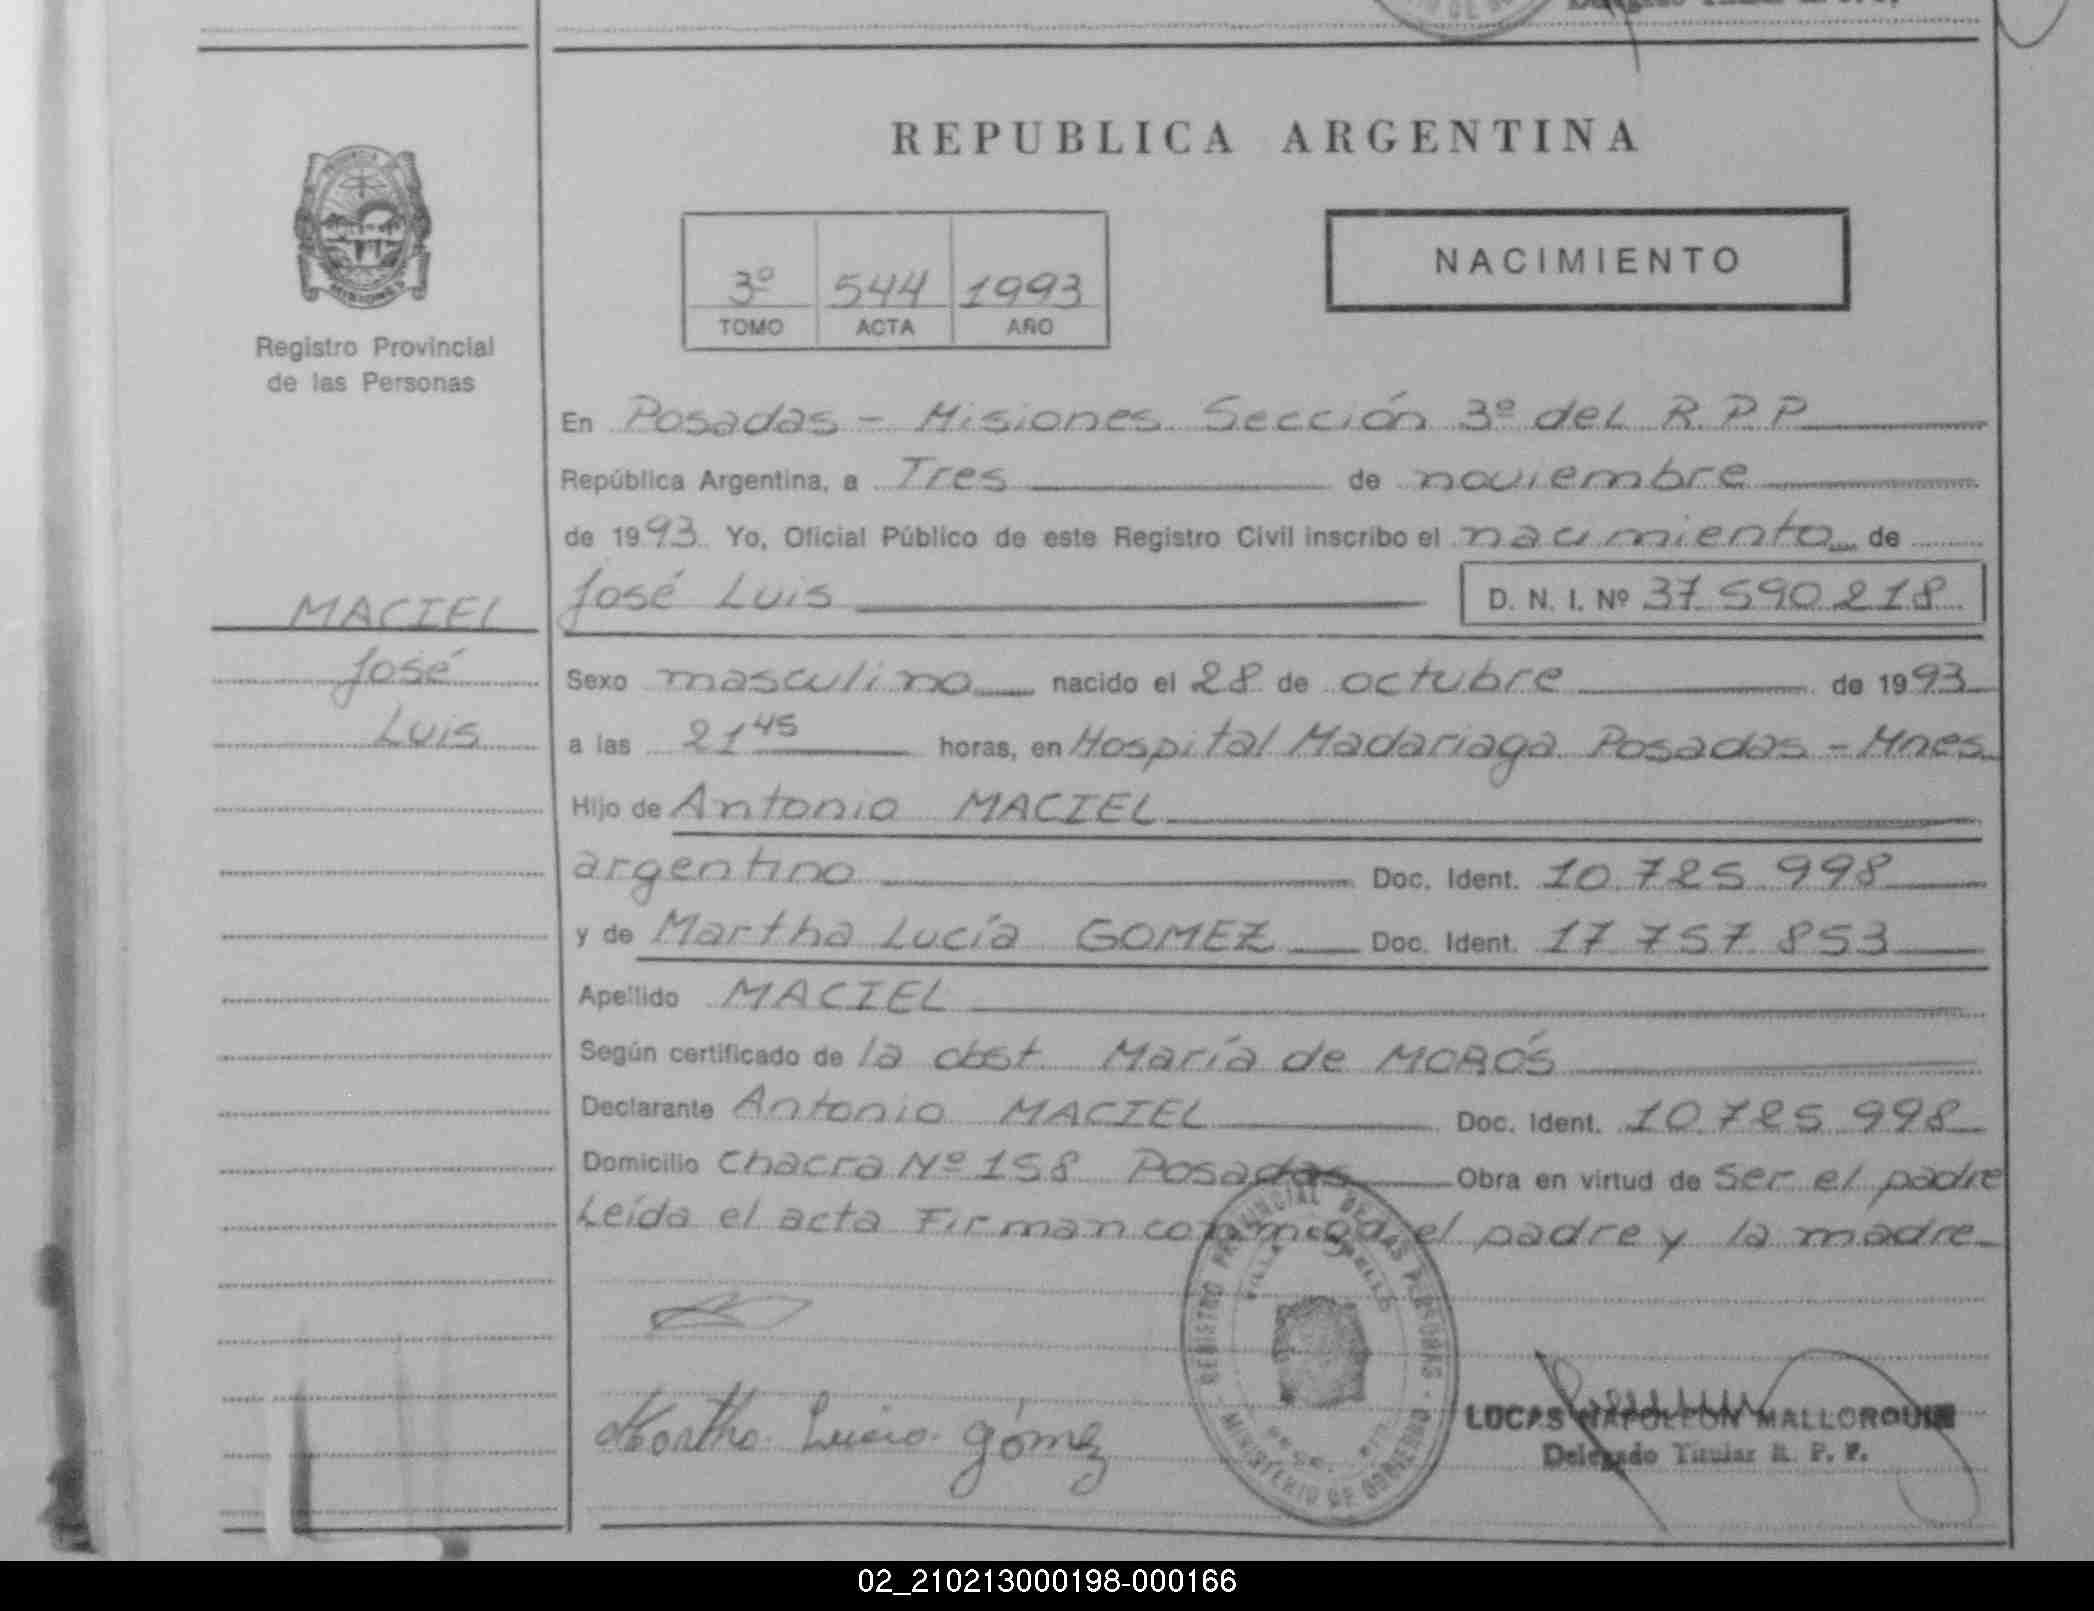 REPUBLICA ARGENTINA
MISIONES
Registro Provincial
de las Personas
3º 544 1993
TOMO ACTA AÑO
NACIMIENTO
En Posadas - Misiones Sección 3º del R.P.P
República Argentina, a Tres de noviembre
de 1993 Yo, Oficial Público de este Registro Civil inscribo el nacimiento de
MACIEL
José Luis D. N. I. Nº 37 590 218
José
Luis
Sexo masculino nacido el 28 de octubre de 1993
a las 21 45 horas, en Hospital Madariaga Posadas - Mnes
Hijo de Antonio MACIEL
argentino Doc. Ident. 10 725 998
y de Martha Lucía GOMEZ Doc. Ident. 17 757 853
Apellido MACIEL
Según certificado de la obst. María de MOROS
Declarante Antonio MACIEL Doc. Ident. 10 725 998
Domicilio Chacra Nº 158 Posadas Obra en virtud de ser el padre
Leída el acta Firman conmigo el padre y la madre
REGISTRO PROVINCIAL DE LAS PERSONAS - MINISTERIO DE GOBIERNO
Martha Lucia gómez
LUCAS NAPOLEON MALLORQUIN
Delegado Titular R. P. P.
02_210213000198-000166